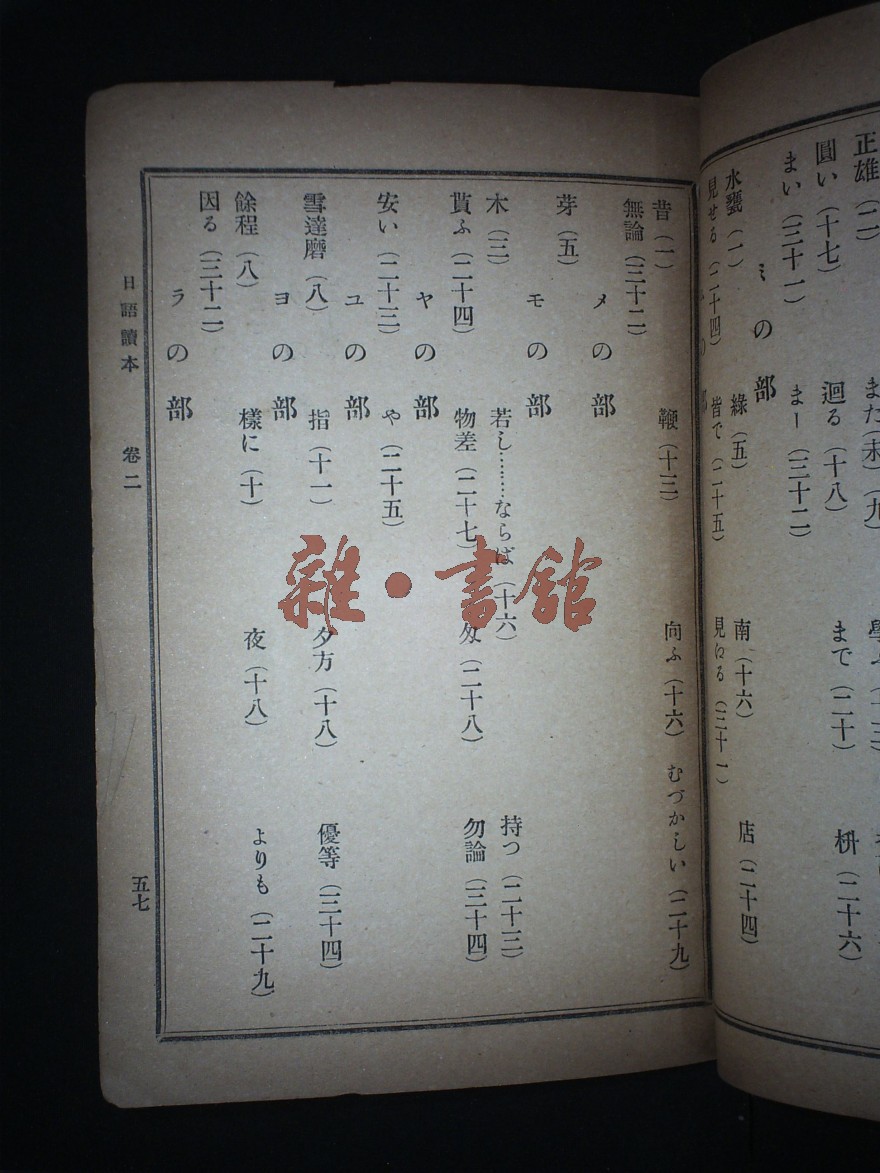 正雄（二）
また（未）（九）
圓い（十七）　迴る（十八）　まで（二十）　枡（二十六）
まい（三十一）　まー（三十二）
ミの部
水甕（一）　綠（五）　南（十六）　店（二十四）
見せる（二十四）　皆で（二十五）　見にる（三十一）
昔（一）　鞭（十三）　向ふ（十六）　むづかしい（二十九）
無論（三十二）
メの部
芽（五）
モの部
木（三）　若し………ならば（十六）　持つ（二十三）
貰ふ（二十四）　物差（二十七）　匁（二十八）　勿論（三十四）
ヤの部
安い（二十三）　や（二十五）
ユの部
雪達磨（八）　指（十一）　夕方（十八）　優等（三十四）
ヨの部
餘程（八）　樣に（十）　夜（十八）　よりも（二十九）
因る（三十二）
ラの部
日語讀本　卷二　五七
雜・書館